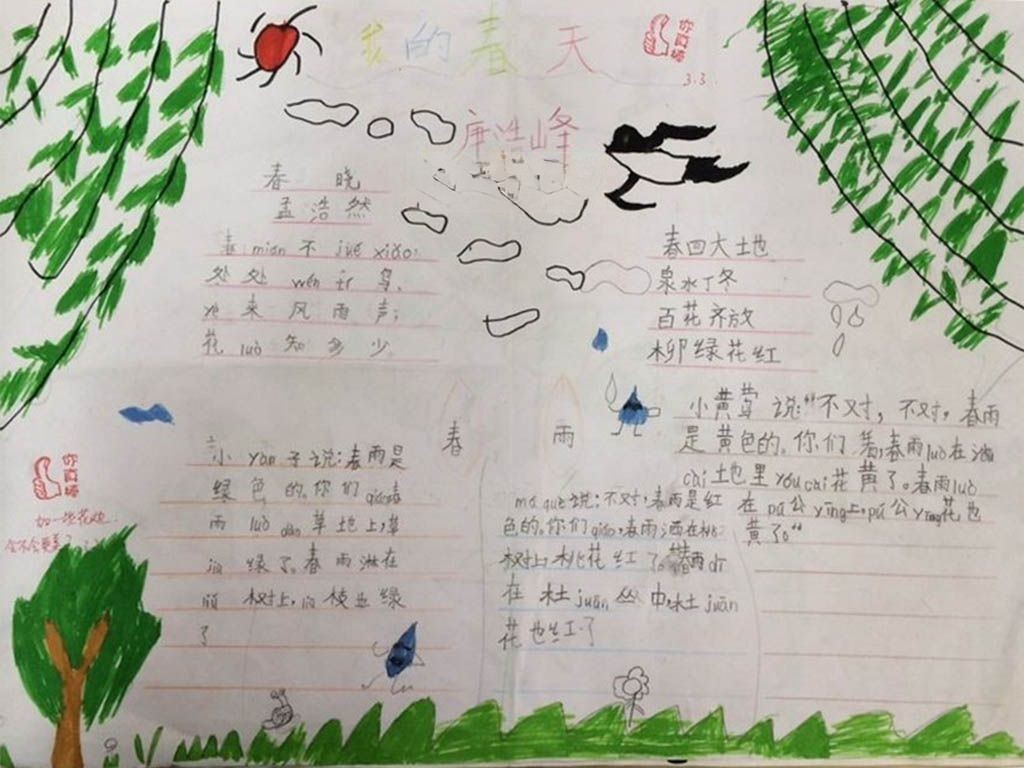 我的春天
你真棒
3.3.
唐浩峰
春 晓
孟浩然
春 mian 不 jué xiǎo,
处处 wén 鸟,
夜来风雨声;
花 luò 知多少
春回大地
泉水丁冬
百花齐放
柳绿花红
春 雨
小 yàn 子说:春雨是
绿色的。你们 qiáo 春
雨 luò dào 草地上,草
绿了。春雨淋在
树上, 枝也绿
了
má què 说:不对,春雨是红
色的。你们 qiáo,春雨洒在桃
树上,桃花红了。春雨
在杜 juān 丛中,杜 juān
花也红了
小黄莺说:“不对,不对,春雨
是黄色的。你们看,春雨 luò 在油
cài 土地里 yóu cài 花黄了。春雨 luò
在 pú 公 yīng 上, pú 公 yīng 花也
黄了。”
你真棒
加一些花边
会不会更美?